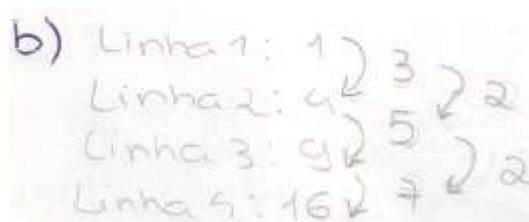 b) Linha 1: 1 3
Linha 2: 4 2
Linha 3: 9 5
Linha 4: 16 7 2